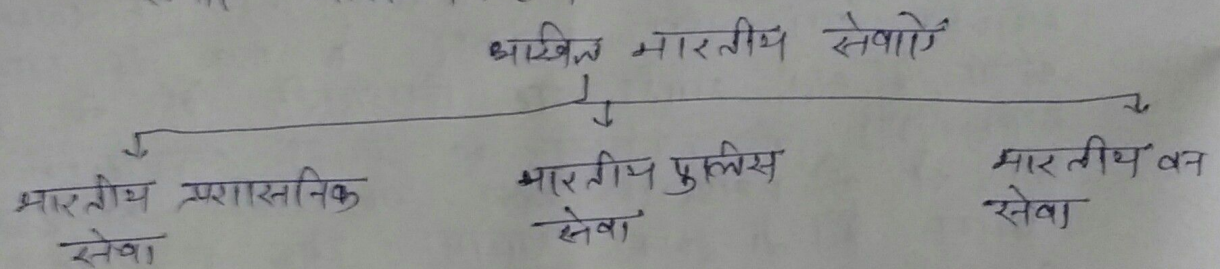 अखिल भारतीय सेवाऐं
भारतीय प्रशासनिक सेवा
भारतीय पुलिस सेवा
भारतीय वन सेवा